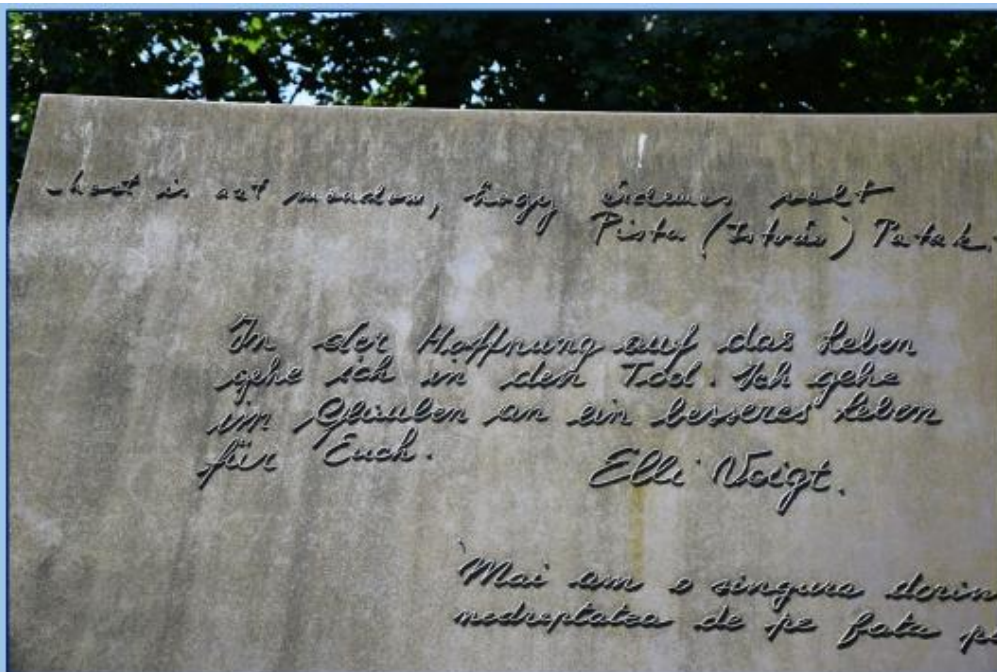 most is azt mondom, hogy érdemes volt
Pista (István) Patak
In der Hoffnung auf das Leben
gehe ich in den Tod. Ich gehe
im Glauben an ein besseres Leben
für Euch.
Elli Voigt.
Mai am o singura dorin
nedreptatea de pe fata p